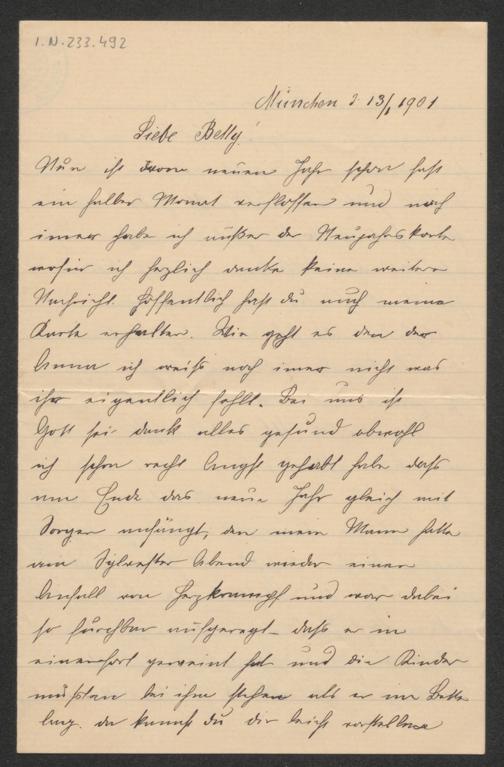 I.N.233.492
München d 13/1 1901
Liebe Betty!
Nun ist vom neuen Jahr schon fast
ein halber Monat verflossen und noch
imer habe ich außer der Neujahrskarte
wofür ich herzlich danke keine weitere
Nachricht. Hoffentlich hast du auch meine
Karte erhalten. Wie geht es den der
Anna ich weiß noch imer nicht was
ihr eigentlich fehlt. Bei uns ist
Gott sei dank alles gesund obwohl
ich schon recht Angst gehabt habe daß
am Ende das neue Jahr gleich mit
Sorgen anfängt, den mein Mann hatte
am Sylvester Abend wieder einen
Anfall von Herzkrampf und war dabei
so furchbar aufgeregt daß er in
einemfort geweint hat und die Kinder
mußten bei ihm stehen als er im Bette
lag. da kannst du dir leicht vorstellen